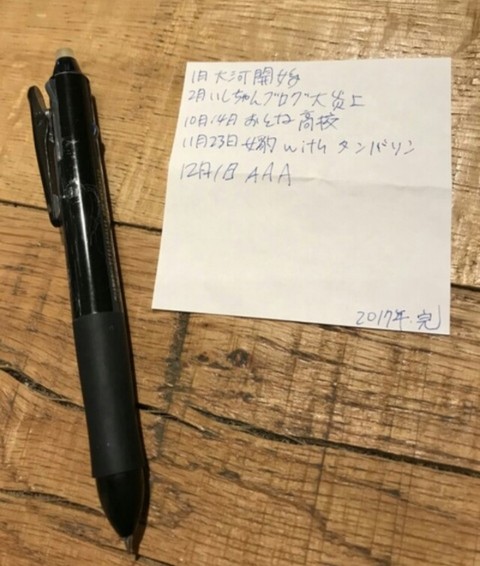 1月 大河開始
2月 いしちゃんブログ大炎上
10月14日 おとな高校
11月23日 女豹 with タンバリン
12月1日 AAA
2017年.完